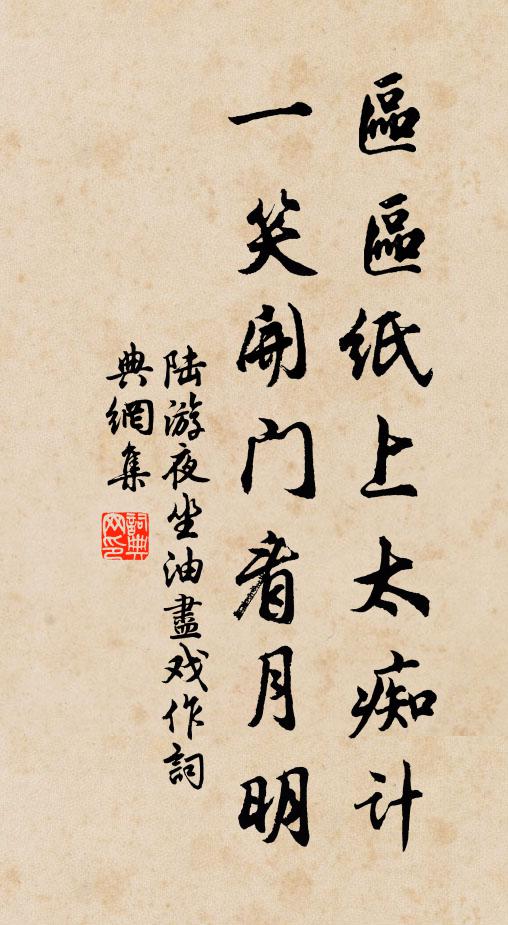 區區紙上太痴计
一笑開门看月明
陆游夜坐油盡戏作詞
典網集
詞典网印